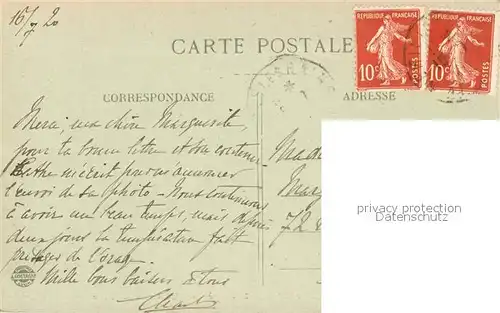 16/7 20
CARTE POSTALE
REPUBLIQUE FRANÇAISE
10c
POSTES
REPUBLIQUE FRANÇAISE
10c
POSTES
CORRESPONDANCE
ADRESSE
Merci, ma chère Marguerite,
pour ta bonne lettre et son contenu.
m'écrit pour m'annoncer
l'envoi de sa photo - Nous continuons
à avoir un beau temps, mais depuis
deux jours la température fait
présager de l'orage.
Mille bons baisers à tous
Mad
Mar
72
privacy protection
Datenschutz